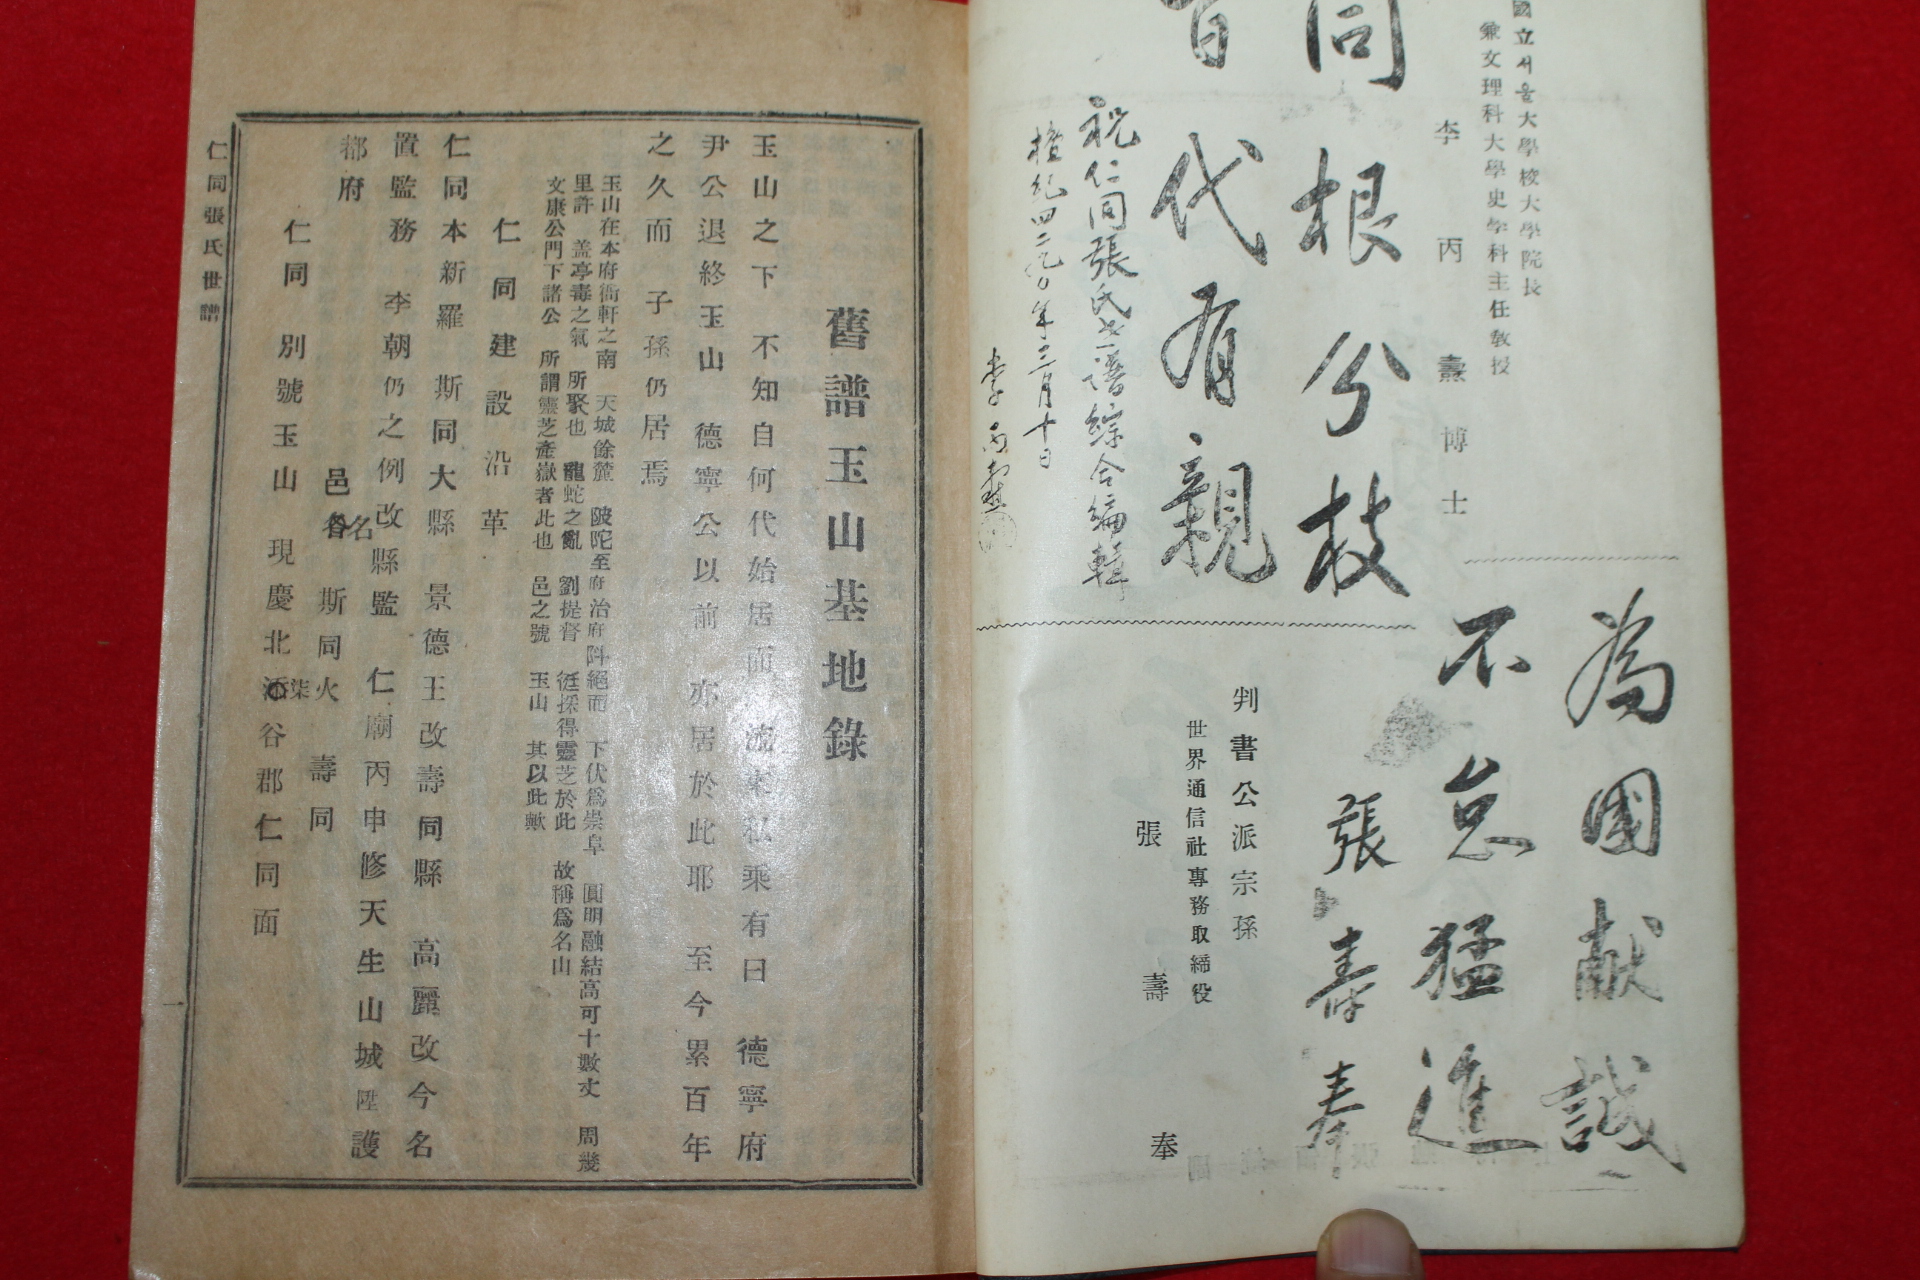 國立서울大學校大學院長
兼文理科大學史學科主任敎授
李丙燾博士
同根分枝
百代有親
祝仁同張氏世譜綜合編輯
檀紀四二九〇年三月十日
李丙燾
為國献誠
不怠猛進
張壽奉
判書公派宗孫
世界通信社專務取締役
張壽奉
舊譜玉山基地錄
玉山之下 不知自何代始居而 流來私乘有曰 德寧府
尹公退終玉山 德寧公以前 亦居於此耶 至今累百年
之久而 子孫仍居焉
玉山在本府衙軒之南 天城餘麓 陂陀至府治府阧絕而 下伏爲崇阜 圓明融結高可十數丈 周幾
里許 蓋亭毒之氣 所聚也 龍蛇之亂 劉提督 綎採得靈芝於此 故稱爲名山
文康公門下諸公 所謂靈芝產嶽者此也 邑之號 玉山 其以此歟
仁同建設沿革
仁同本新羅 斯同大縣 景德王改壽同縣 高麗改今名
置監務 李朝仍之例改縣監 仁廟丙申修天生山城陞護
都府
邑名 斯同火 壽同
仁同 別號玉山 現慶北漆谷郡仁同面
仁同張氏世譜
一